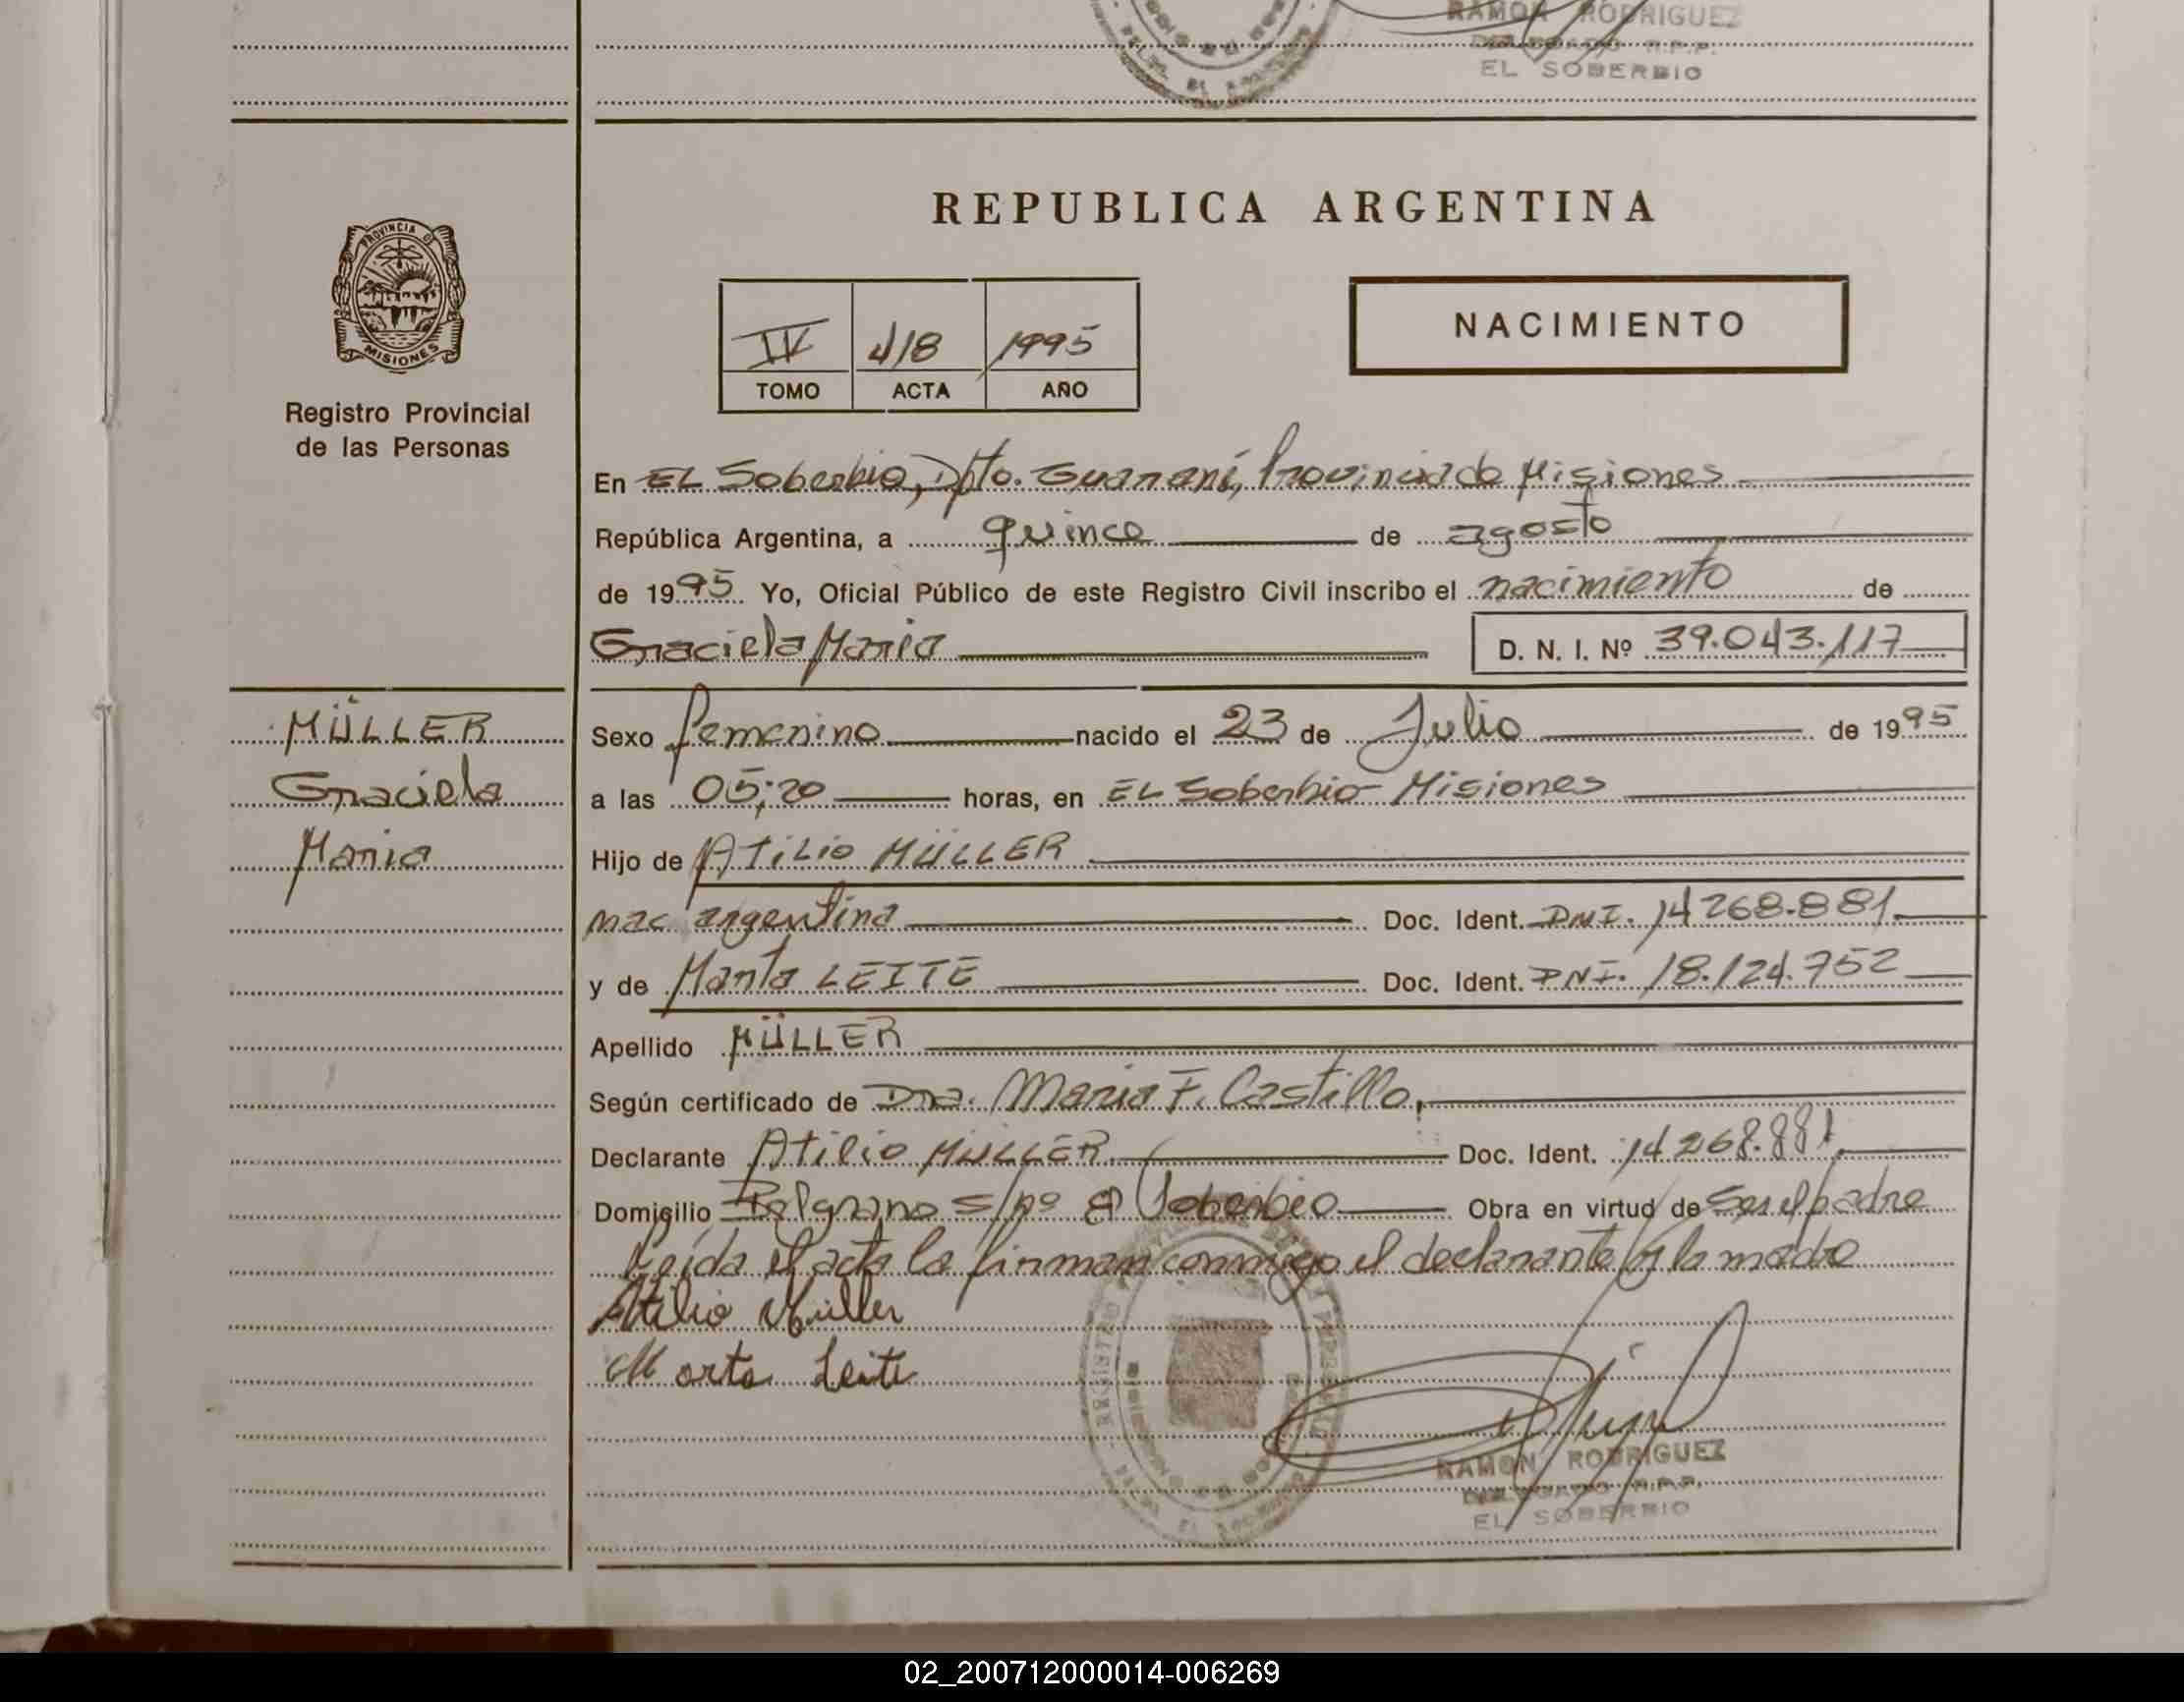 RAMON RODRIGUEZ
DELEGADO R.P.P.
EL SOBERBIO
REPUBLICA ARGENTINA
PROVINCIA DE
MISIONES
Registro Provincial
de las Personas
IV 418 1995
TOMO ACTA AÑO
NACIMIENTO
En EL Soberbio, Dpto. Guaraní, Provincia de Misiones
República Argentina, a quince de agosto
de 1995 Yo, Oficial Público de este Registro Civil inscribo el nacimiento de
Graciela Maria D. N. I. Nº 39.043.117
MÜLLER
Graciela
Maria
Sexo femenino nacido el 23 de Julio de 1995
a las 05;20 horas, en EL Soberbio - Misiones
Hijo de Atilio MÜLLER
nac argentina Doc. Ident. DNI. 14268.881
y de Marta LEITE Doc. Ident. DNI. 18.124.752
Apellido MÜLLER
Según certificado de Dra. Maria F. Castillo.
Declarante Atilio MÜLLER Doc. Ident. 14.268.881
Domicilio Belgrano s/nº El Soberbio Obra en virtud de Ser el padre
Leída el acta la firman conmigo el declarante y la madre
Atilio Müller
Marta Leite
RAMON RODRIGUEZ
DELEGADO R.P.P.
EL SOBERBIO
02_200712000014-006269